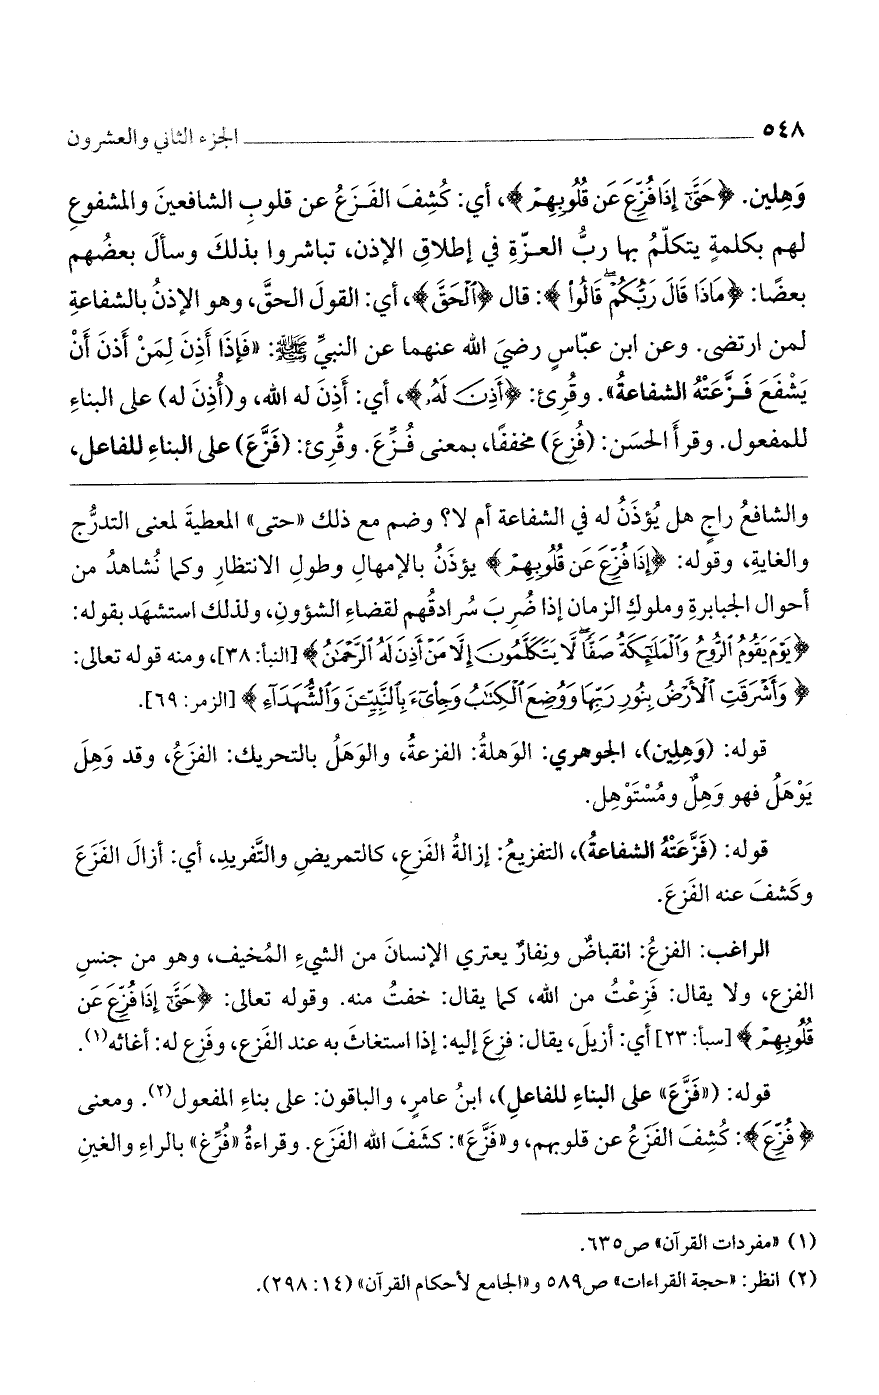 ٥٤٨ ــــــــــــــــــــــــــــــــــــ الجزء الثاني والعشرون
وَهِلين. ﴿حَتَّىٰٓ إِذَا فُزِّعَ عَن قُلُوبِهِمْ﴾، أي: كُشِفَ الفَـزَعُ عن قلوبِ الشافعينَ والمشفوعِ
لهم بكلمةٍ يتكلّمُ بها ربُّ العـزّةِ في إطلاقِ الإذن، تباشروا بذلكَ وسألَ بعضُهم
بعضًا: ﴿مَاذَا قَالَ رَبُّكُمْ ۖ قَالُوا۟ ﴾: قال ﴿ٱلْحَقَّ﴾، أي: القولَ الحقَّ، وهو الإذنُ بالشفاعةِ
لمن ارتضى. وعن ابن عبّاسٍ رضيَ الله عنهما عن النبيِّ ﷺ: «فَإِذَا أَذِنَ لِمَنْ أَذنَ أَنْ
يَشْفَعَ فَـزَّعَتْهُ الشفاعةُ». وقُرِئ: ﴿أَذِنَ لَهُۥ﴾، أي: أَذِنَ له الله، و(أُذِنَ له) على البناءِ
للمفعول. وقرأَ الحسَن: (فُزِعَ) مخففًا، بمعنى فُـزِّعَ. وقُرِئ: (فَزَّعَ) على البناءِ للفاعل،
والشافعُ راجٍ هل يُؤذَنُ له في الشفاعة أم لا؟ وضم مع ذلك «حتى» المعطيةَ لمعنى التدرُّج
والغايةِ، وقوله: ﴿إِذَا فُزِّعَ عَن قُلُوبِهِمْ﴾ يؤذَنُ بالإمهالِ وطولِ الانتظارِ وكما نُشاهدُ من
أحوال الجبابرةِ وملوكِ الزمان إذا ضُرِبَ سُرادقُهم لقضاءِ الشؤونِ، ولذلك استشهَد بقوله:
﴿يَوْمَ يَقُومُ ٱلرُّوحُ وَٱلْمَلَٰٓئِكَةُ صَفًّا ۖ لَّا يَتَكَلَّمُونَ إِلَّا مَنْ أَذِنَ لَهُ ٱلرَّحْمَٰنُ﴾ [النبأ: ٣٨]، ومنه قوله تعالى:
﴿ وَأَشْرَقَتِ ٱلْأَرْضُ بِنُورِ رَبِّهَا وَوُضِعَ ٱلْكِتَٰبُ وَجِا۟ىٓءَ بِٱلنَّبِيِّـۧنَ وَٱلشُّهَدَآءِ ﴾ [الزمر: ٦٩].
قوله: (وَهِلِين)، الجوهري: الوَهلةُ: الفزعةُ، والوَهَلُ بالتحريك: الفزَعُ، وقد وَهِلَ
يَوْهَلُ فهو وَهِلٌ ومُسْتَوْهِل.
قوله: (فَزَّعَتْهُ الشفاعةُ)، التفزيعُ: إزالةُ الفَزعِ، كالتمريضِ والتَّفريدِ، أي: أزالَ الفَزَعَ
وكَشفَ عنه الفَزعَ.
الراغب: الفزعُ: انقباضٌ ونِفارٌ يعتري الإنسانَ من الشيءِ المُخيف، وهو من جنسِ
الفزع، ولا يقال: فَزِعْتُ من الله، كما يقال: خفتُ منه. وقوله تعالى: ﴿حَتَّىٰٓ إِذَا فُزِّعَ عَن
قُلُوبِهِمْ﴾ [سبأ: ٢٣] أي: أزيلَ، يقال: فزِعَ إليه: إذا استغاثَ به عند الفَزع، وفَزِع له: أغاثه(١).
قوله: («فَزَّعَ» على البناءِ للفاعلِ)، ابنُ عامرٍ، والباقون: على بناءِ المفعول(٢). ومعنى
﴿ فُزِّعَ﴾: كُشِفَ الفَزَعُ عن قلوبهم، و«فَزَّعَ»: كشَفَ الله الفَزَع. وقراءةُ «فُرِّغ» بالراءِ والغينِ
(١) «مفردات القرآن» ص٦٣٥.
(٢) انظر: «حجة القراءات» ص٥٨٩ و«الجامع لأحكام القرآن» (١٤: ٢٩٨).